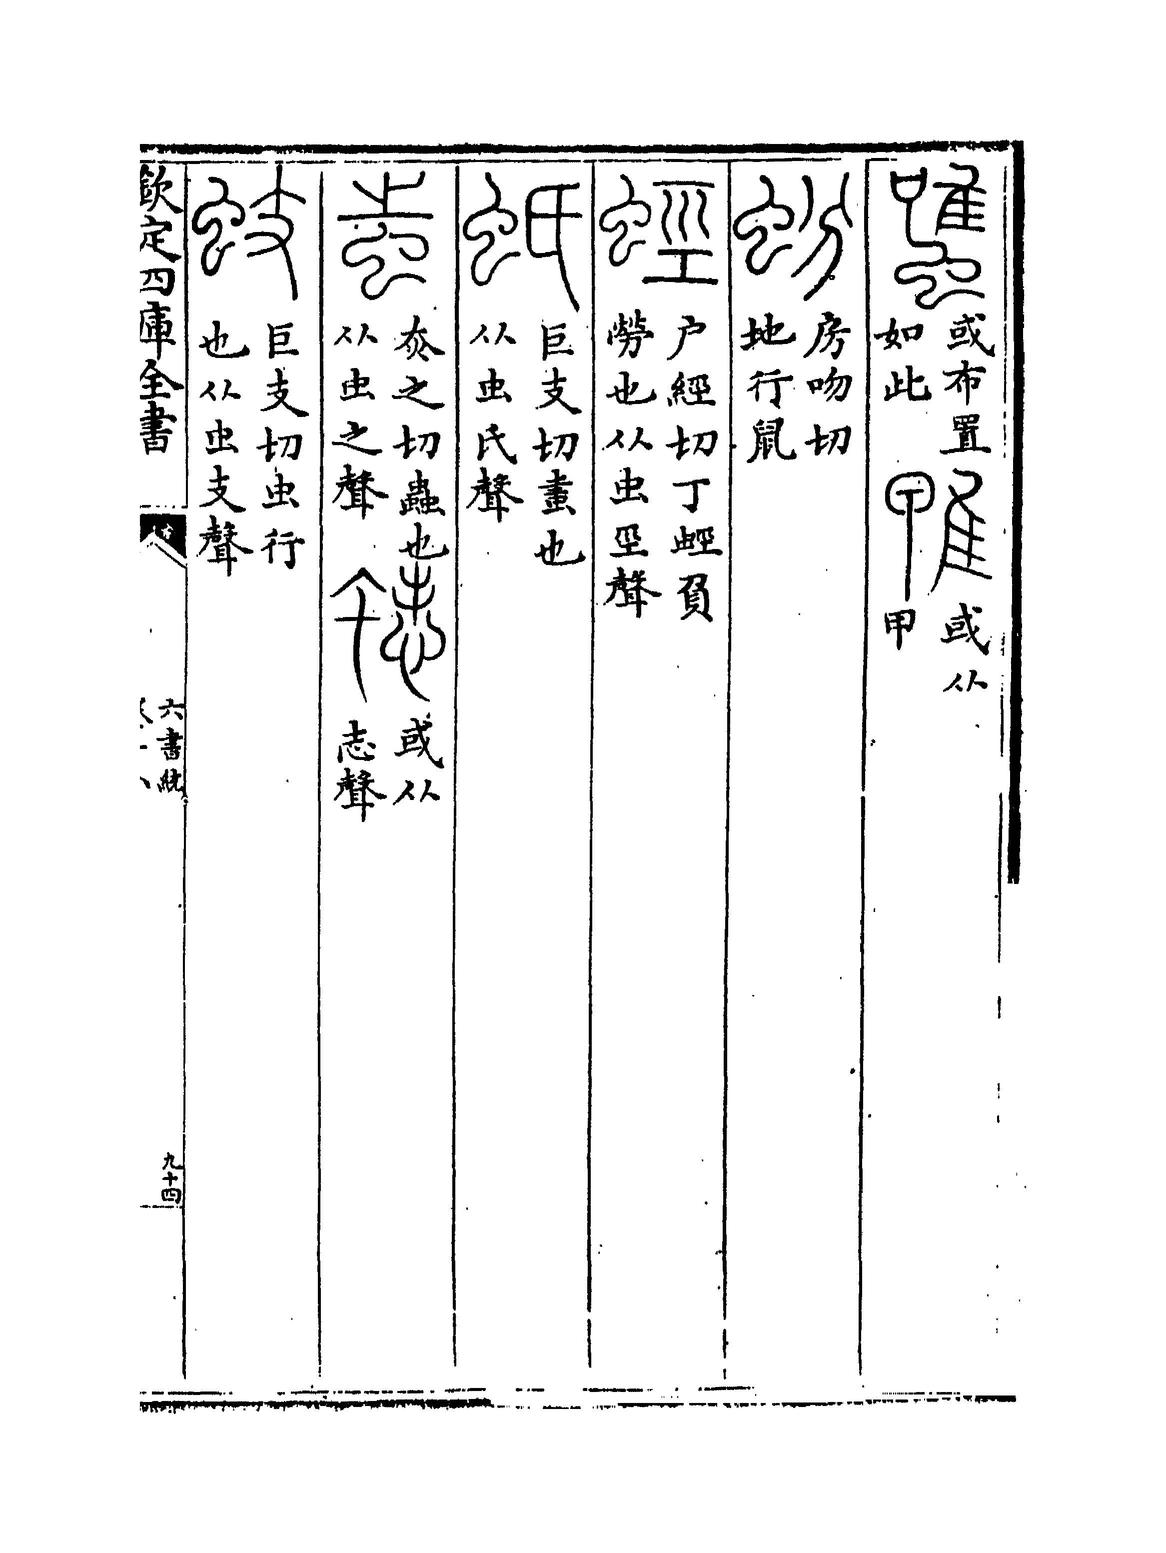 雖 或布置如此 或从甲
蚡 房吻切地行鼠
蛵 户經切丁蛵負勞也从虫巠聲
蚔 巨支切畫也从虫氏聲
蚩 赤之切蟲也从虫之聲 或从志聲
蚑 巨支切虫行也从虫支聲
欽定四庫全書
六書統
九十四